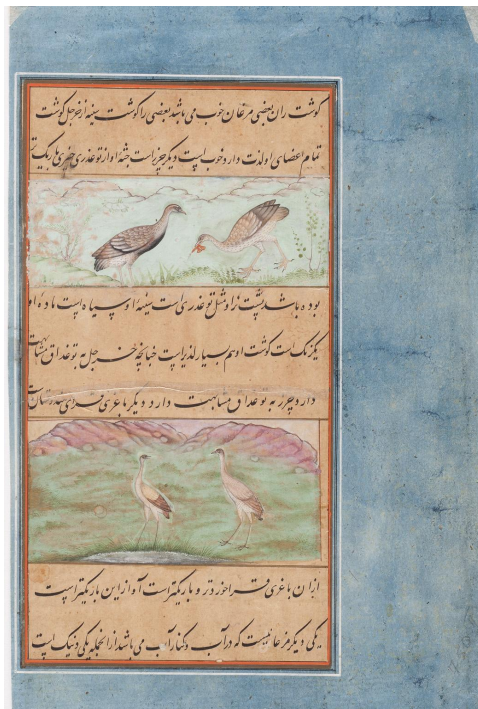 گوشت ران بعضی مرغان خوب می باشد بعضی را گوشت سینه از خرجل گوشت
تمام اعضای او لذت دارد و خوب است دیگر چرز است جثهٔ او از توغدری چیزی باریک تر
بوده باشد پشت نر او مثل توغدری است سینهٔ او سیاه است مادهٔ او
یکرنگ است گوشت او هم بسیار لذیذ است چنانچه خرجل به توغداق مشابهت
دارد چرز به توغداق مشابهت دارد دیگر باغری قرای هندوستان است
از آن باغری قرا خوردتر و باریکتر است آواز این باریکتر است
یکی دیگر مرغانیست که در آب و کنار آب می باشد از انجمله یکی دنیک است